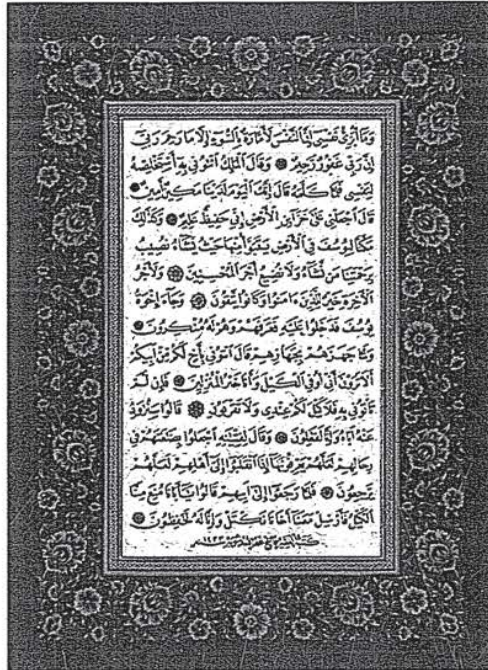 وَمَٓا اُبَرِّئُ نَفْسٖي اِنَّ النَّفْسَ لَاَمَّارَةٌ بِالسُّٓوءِ اِلَّا مَا رَحِمَ رَبّٖي
اِنَّ رَبّٖي غَفُورٌ رَحٖيمٌ وَقَالَ الْمَلِكُ ائْتُونٖي بِهٖٓ اَسْتَخْلِصْهُ
لِنَفْسٖي فَلَمَّا كَلَّمَهُ قَالَ اِنَّكَ الْيَوْمَ لَدَيْنَا مَكٖينٌ اَمٖينٌ
قَالَ اجْعَلْنٖي عَلٰى خَزَٓائِنِ الْاَرْضِ اِنّٖي حَفٖيظٌ عَلٖيمٌ وَكَذٰلِكَ
مَكَّنَّا لِيُوسُفَ فِي الْاَرْضِ يَتَبَوَّاُ مِنْهَا حَيْثُ يَشَٓاءُ نُصٖيبُ
بِرَحْمَتِنَا مَنْ نَشَٓاءُ وَلَا نُضٖيعُ اَجْرَ الْمُحْسِنٖينَ وَلَاَجْرُ
الْاٰخِرَةِ خَيْرٌ لِلَّذٖينَ اٰمَنُوا وَكَانُوا يَتَّقُونَ وَجَٓاءَ اِخْوَةُ
يُوسُفَ فَدَخَلُوا عَلَيْهِ فَعَرَفَهُمْ وَهُمْ لَهُ مُنْكِرُونَ
وَلَمَّا جَهَّزَهُمْ بِجَهَازِهِمْ قَالَ ائْتُونٖي بِاَخٍ لَكُمْ مِنْ اَبٖيكُمْ
اَلَا تَرَوْنَ اَنّٖٓي اُوفِي الْكَيْلَ وَاَنَا۬ خَيْرُ الْمُنْزِلٖينَ فَاِنْ لَمْ
تَأْتُونٖي بِهٖ فَلَا كَيْلَ لَكُمْ عِنْدٖي وَلَا تَقْرَبُونِ قَالُوا سَنُرَاوِدُ
عَنْهُ اَبَاهُ وَاِنَّا لَفَاعِلُونَ وَقَالَ لِفِتْيَانِهِ اجْعَلُوا بِضَاعَتَهُمْ فٖي
رِحَالِهِمْ لَعَلَّهُمْ يَعْرِفُونَهَٓا اِذَا انْقَلَبُٓوا اِلٰٓى اَهْلِهِمْ لَعَلَّهُمْ
يَرْجِعُونَ فَلَمَّا رَجَعُٓوا اِلٰٓى اَبٖيهِمْ قَالُوا يَٓا اَبَانَا مُنِعَ مِنَّا
الْكَيْلُ فَاَرْسِلْ مَعَنَٓا اَخَانَا نَكْتَلْ وَاِنَّا لَهُ لَحَافِظُونَ